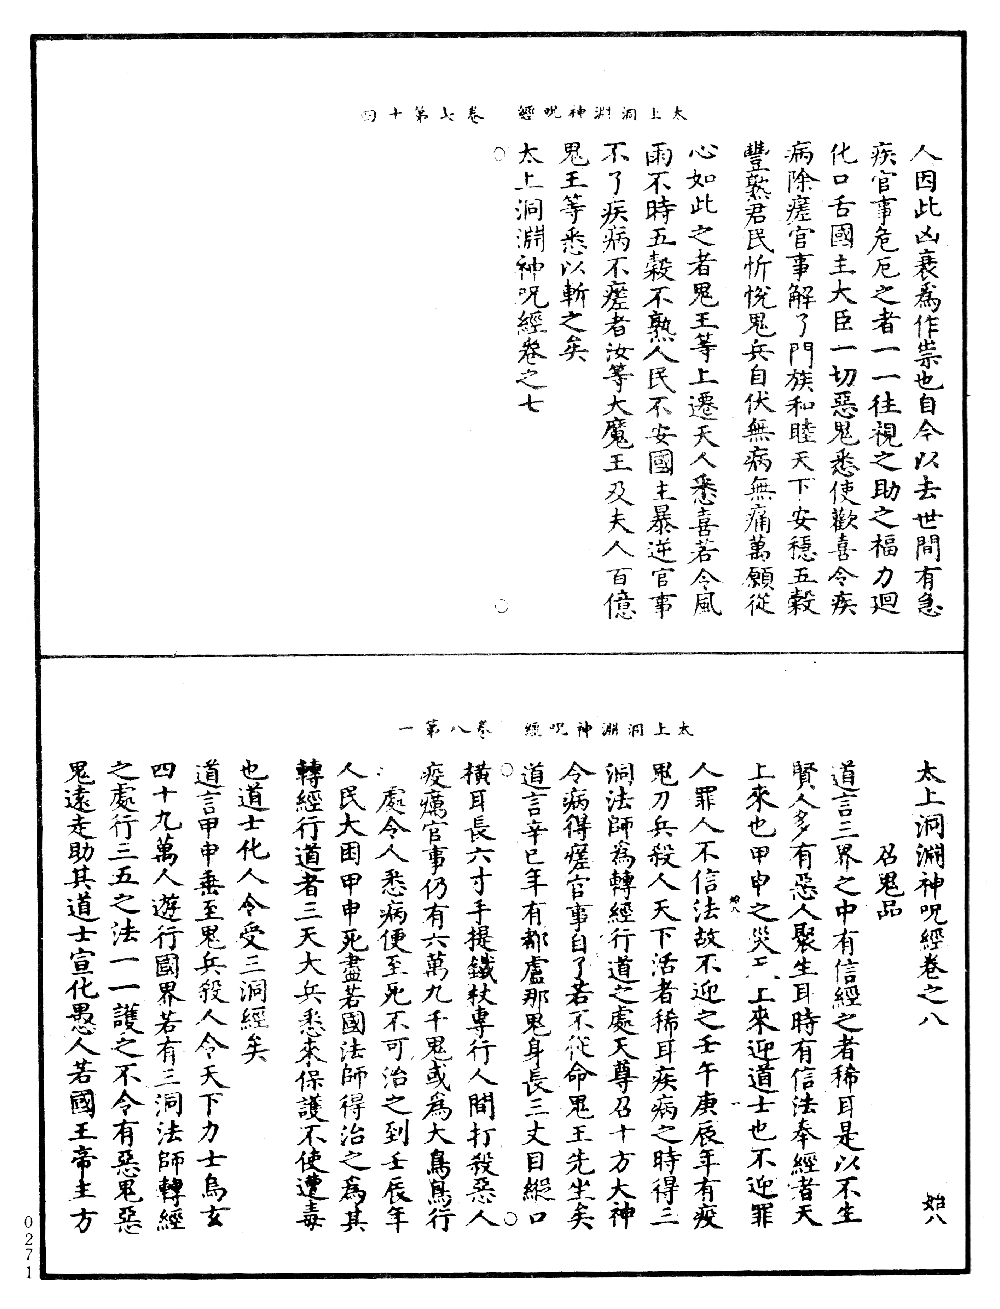 太上洞淵神呪經　卷七第十四
人因此凶衰爲作祟也自今以去世間有急
疾官事危厄之者一一往視之助之福力廻
化口舌國主大臣一切惡鬼悉使歡喜令疾
病除瘥官事解了門族和睦天下安穩五穀
豐熟君民忻悅鬼兵自伏無病無痛萬願從
心如此之者鬼王等上遷天人悉喜若令風
雨不時五穀不熟人民不安國主暴逆官事
不了疾病不瘥者汝等大魔王及夫人百億
鬼王等悉以斬之矣
太上洞淵神呪經卷之七
太上洞淵神呪經　卷八第一
太上洞淵神呪經卷之八　始八
召鬼品
道言三界之中有信經之者稀耳是以不生
賢人多有惡人聚生耳時有信法奉經者天
上來也甲申之災上來迎道士也不迎罪
始八
人罪人不信法故不迎之壬午庚辰年有疫
鬼刀兵殺人天下活者稀耳疾病之時得三
洞法師爲轉經行道之處天尊召十方大神
令病得瘥官事自了若不從命鬼王先坐矣
道言辛巳年有都盧那鬼身長三丈目縱口
橫耳長六寸手提鐵杖專行人間打殺惡人
疫癘官事仍有六萬九千鬼或爲大鳥鳥行
處令人悉病便至死不可治之到壬辰年
人民大困甲申死盡若國法師得治之爲其
轉經行道者三天大兵悉來保護不使遭毒
也道士化人令受三洞經矣
道言甲申垂至鬼兵殺人令天下力士烏玄
四十九萬人遊行國界若有三洞法師轉經
之處行三五之法一一護之不令有惡鬼惡
鬼遠走助其道士宣化愚人若國王帝主方
0271